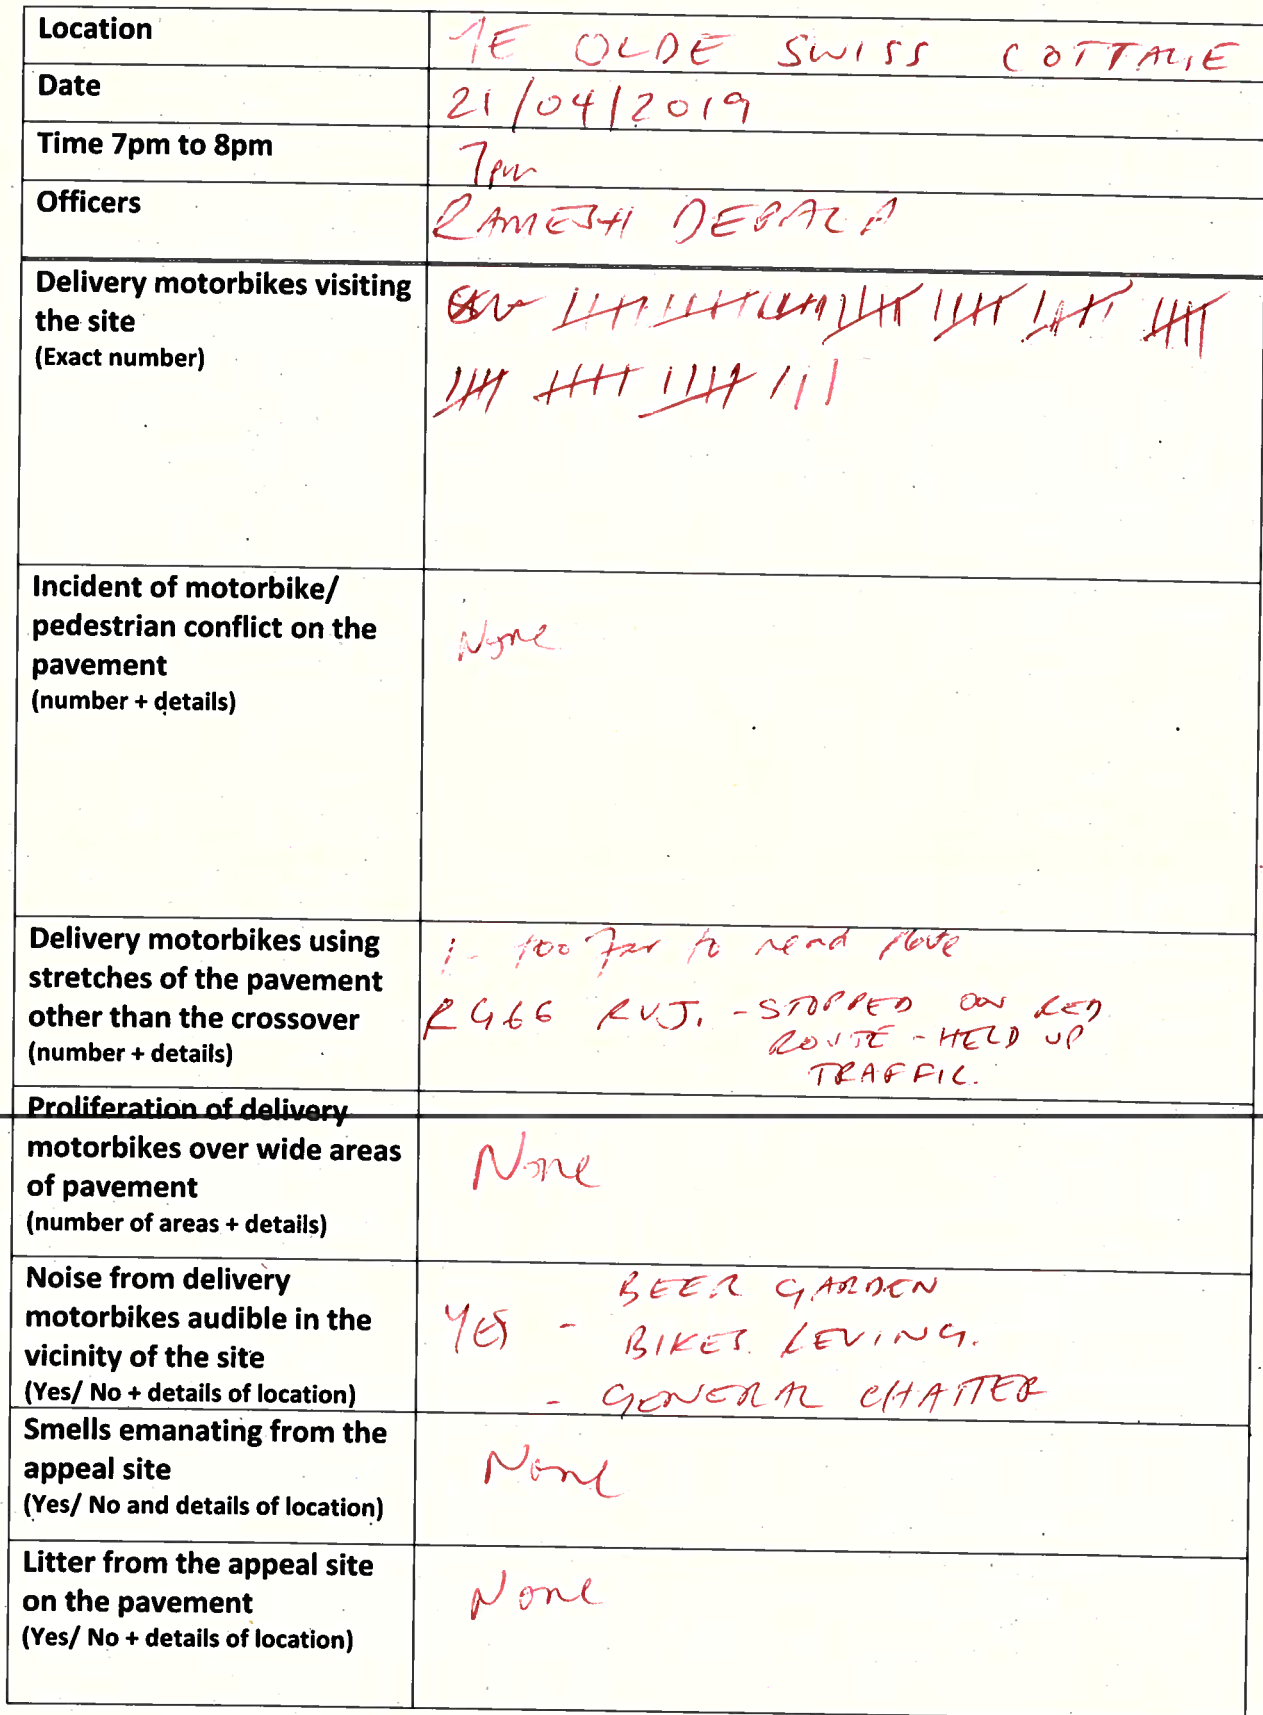 Location
YE OLDE SWISS COTTAGE
Date
21/04/2019
Time 7pm to 8pm
7pm
Officers
RAMESH DEPALA
Delivery motorbikes visiting
the site
(Exact number)
Incident of motorbike/
pedestrian conflict on the
pavement
(number + details)
None
Delivery motorbikes using
stretches of the pavement
other than the crossover
(number + details)
1 - too far to read plate
RG66 RVJ. - STOPPED ON RED
ROUTE - HELD UP
TRAFFIC.
Proliferation of delivery
motorbikes over wide areas
of pavement
(number of areas + details)
None
Noise from delivery
motorbikes audible in the
vicinity of the site
(Yes/ No + details of location)
BEER GARDEN
YES - BIKES REVING.
- GENERAL CHATTER
Smells emanating from the
appeal site
(Yes/ No and details of location)
None
Litter from the appeal site
on the pavement
(Yes/ No + details of location)
None